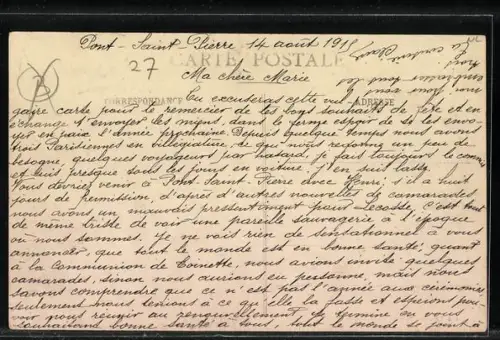 Pont-Saint-Pierre 14 août 1915
CARTE POSTALE
27
Ma chère Marie
CORRESPONDANCE
ADRESSE
B
Tu excuseras cette vul
gaire carte pour te remercier de tes bons souhaits de fête et en
échange t'envoyer les miens, dans le ferme espoir de te les envo
yer en paix l'année prochaine. Depuis quelque temps nous avons
trois Parisiennes en villégiature, ce qui nous redonne un peu de
besogne, quelques voyageurs par hasard, je fais toujours le
et suis presque tous les jours en voiture; j'en suis lasse.
Vous devriez venir à Pont-Saint-Pierre avec Henri; il a huit
jours de permission, d'après d'autres nouvelles de camarades
nous avons un mauvais pressentiment pour Lecosse, c'est tout
de même triste de voir une pareille sauvagerie à l'époque
où nous sommes. Je ne vois rien de sensationnel à vous
annoncer, que tout le monde est en bonne santé; quant
à la Communion de Toinette, nous avions invité quelques
camarades, sinon nous aurions eu personne, mais nous
savons comprendre que ce n'est pas l'année aux cérémonies
seulement nous tenions à ce qu'elle la fasse et espérons pou
voir nous réunir au renouvellement. Je termine en vous
souhaitant bonne santé à tous, tout le monde se joint à
moi pour vous
embrasser tous bien
fort
Ta cousine